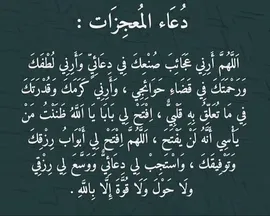 دُعَاء المُعجِزَات :
اَللَّهُمَّ أَرِنِي عَجَائِبَ صُنْعَكَ فِي دعَائِيَّ وَأَرِنِي لُطْفَكَ
وَرَحْمَتَكَ فِي قَضَاءِ حَوَائِجِي ، وَأَرِنِي كَرَمَكَ وَقُدْرَتَكَ
فِي مَا تَعَلَّقَ بِهِ قَلْبِيَّ ، اِفْتَحْ لِي بَابًا يَا اَللَّهُ ظَنَنْتُ مَنْ
يَأْسِي أَنَّهُ لَنْ يَفْتَحَ ، اَللَّهُمَّ اِفْتَحْ لِي أَبْوَابُ رِزْقِكَ
وَتَوْفِيقَكَ ، وَاسْتَجبْ لِي دعَائِيَّ وَوَسَّعَ لِي رِزْقِي
وَلَا حَوْلَ وَلَا قُوَّةً إِلَّا بِاَللَّهِ .